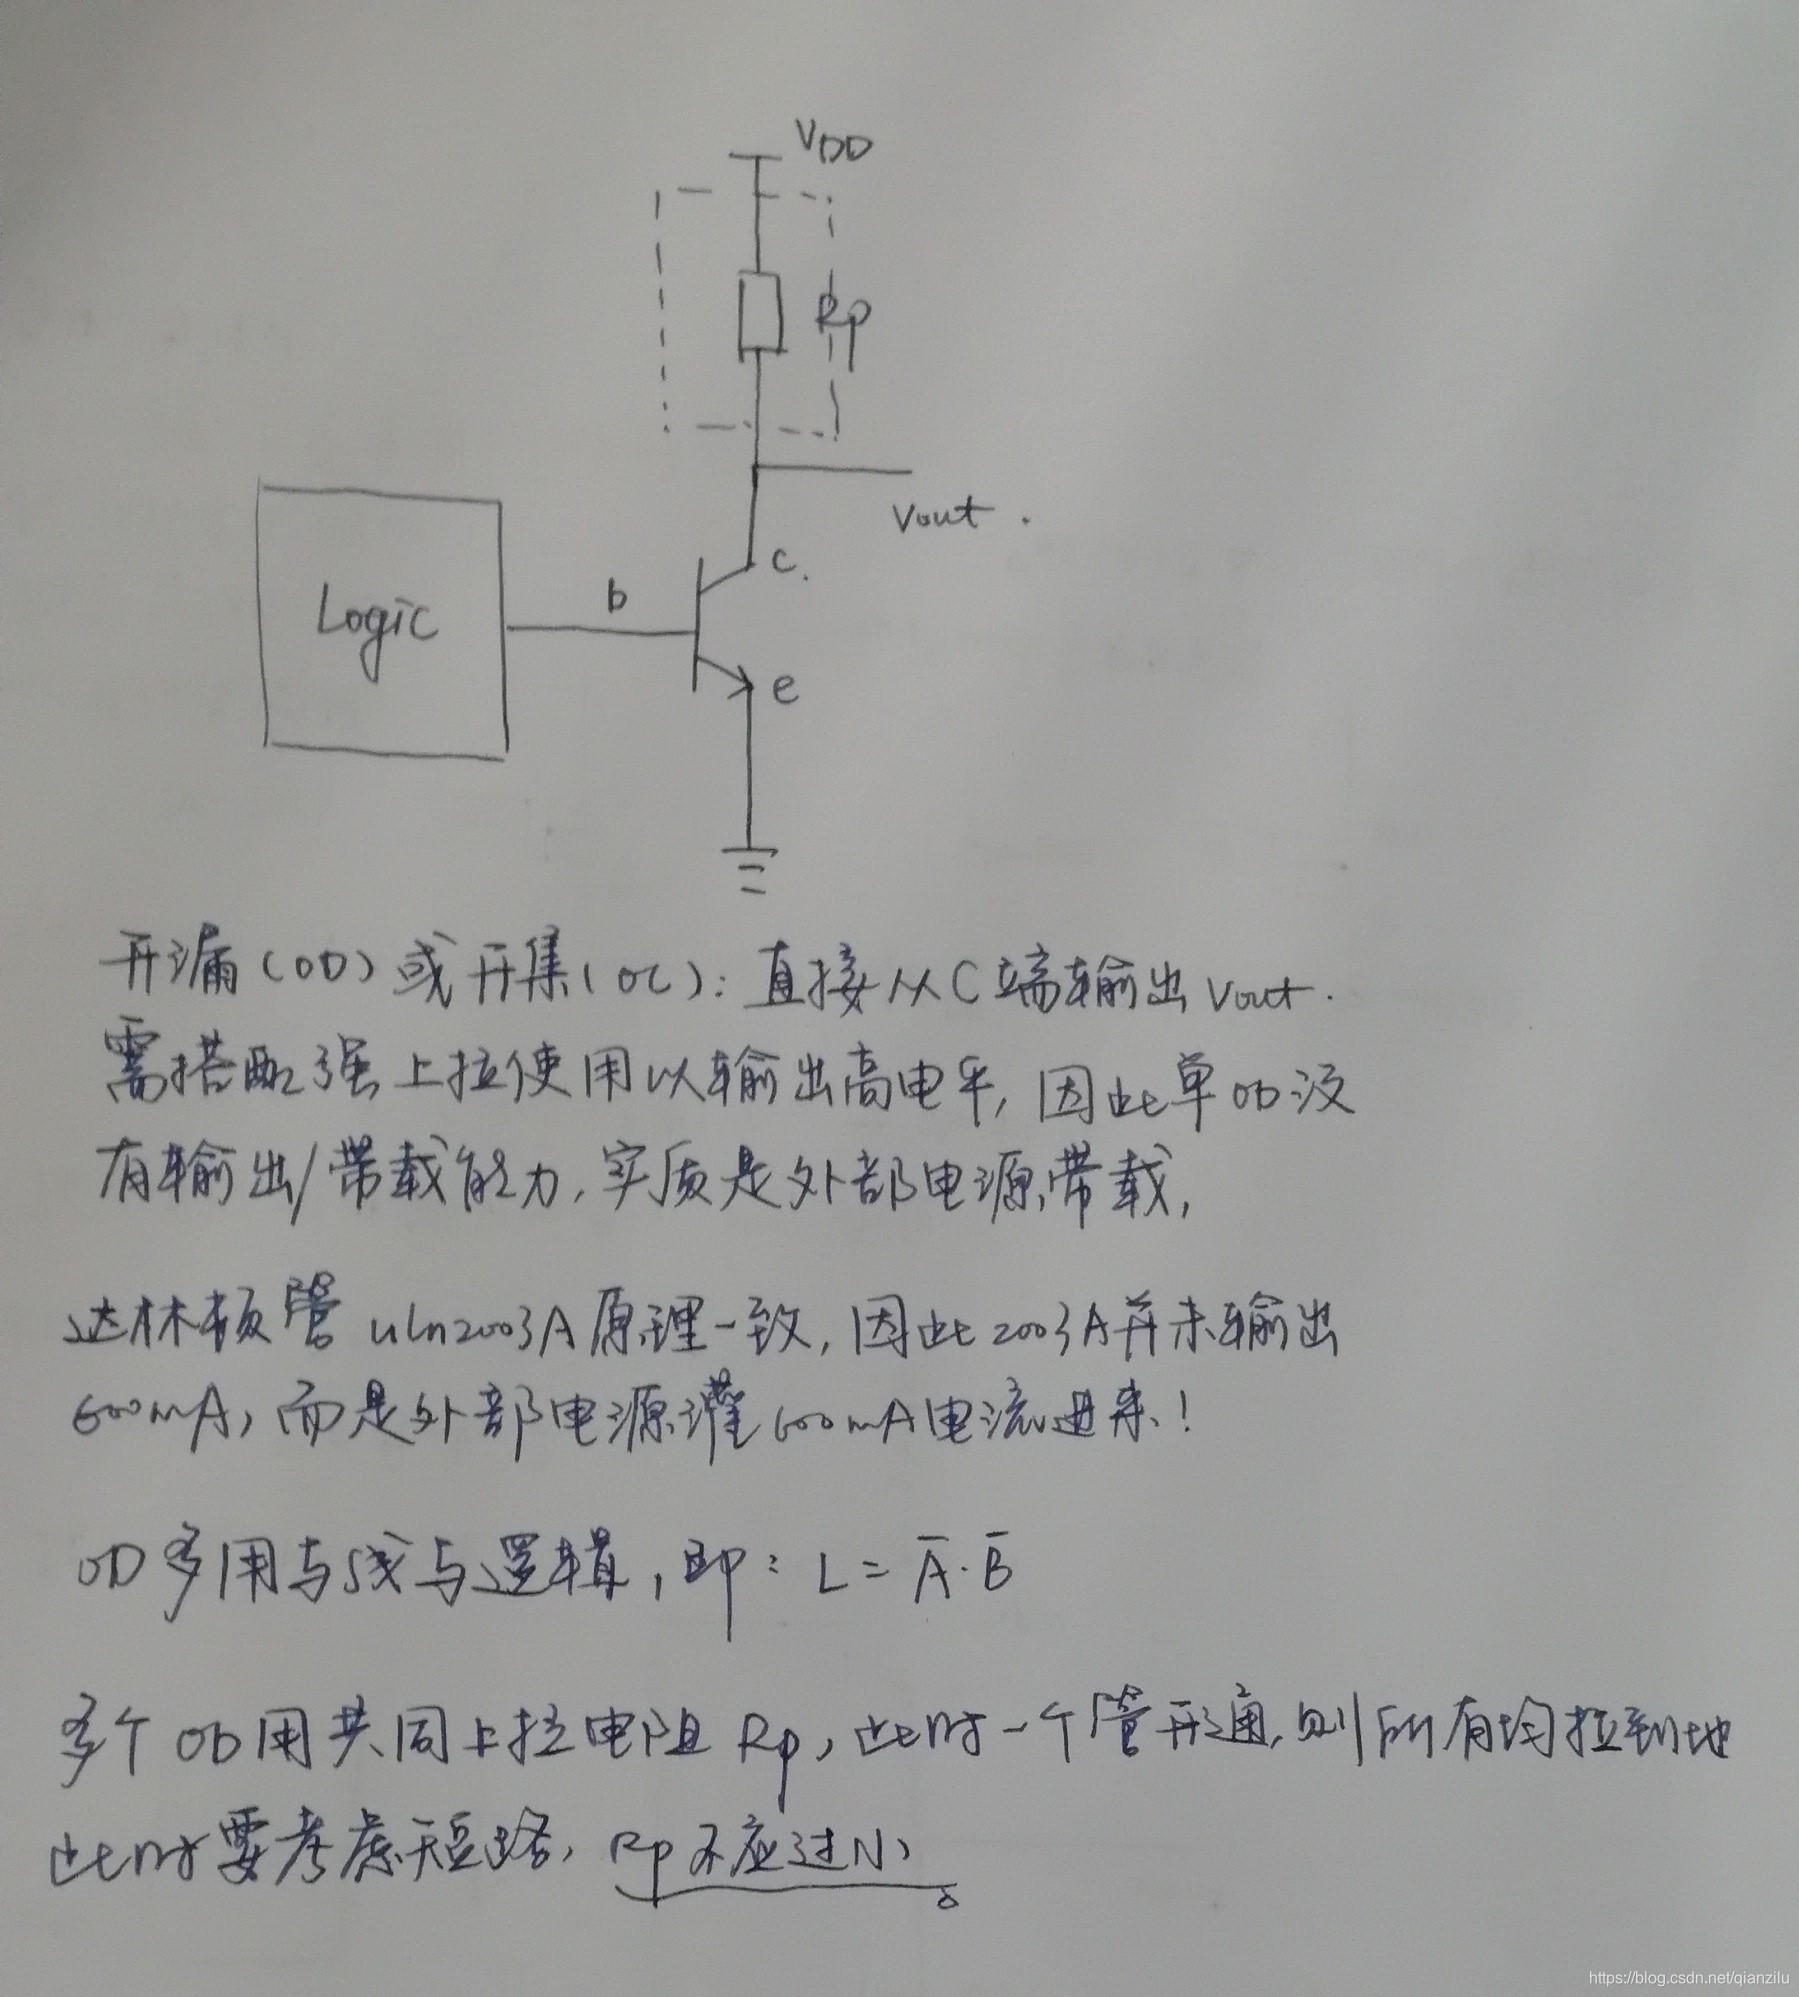 VDD
Rp
Vout.
c.
b
Logic
e
开漏(OD)或开集(OC):直接从C端输出Vout.
需搭配强上拉使用以输出高电平,因此单OD没
有输出/带载能力,实质是外部电源带载,
达林顿管uln2003A原理一致,因此2003A并未输出
600mA,而是外部电源灌600mA电流进来!
OD多用与线与逻辑,即:L=A̅·B̅
多个OD用共同上拉电阻Rp,此时一个管开通,则所有均拉到地
此时要考虑短路,Rp不应过小
https://blog.csdn.net/qianzilu